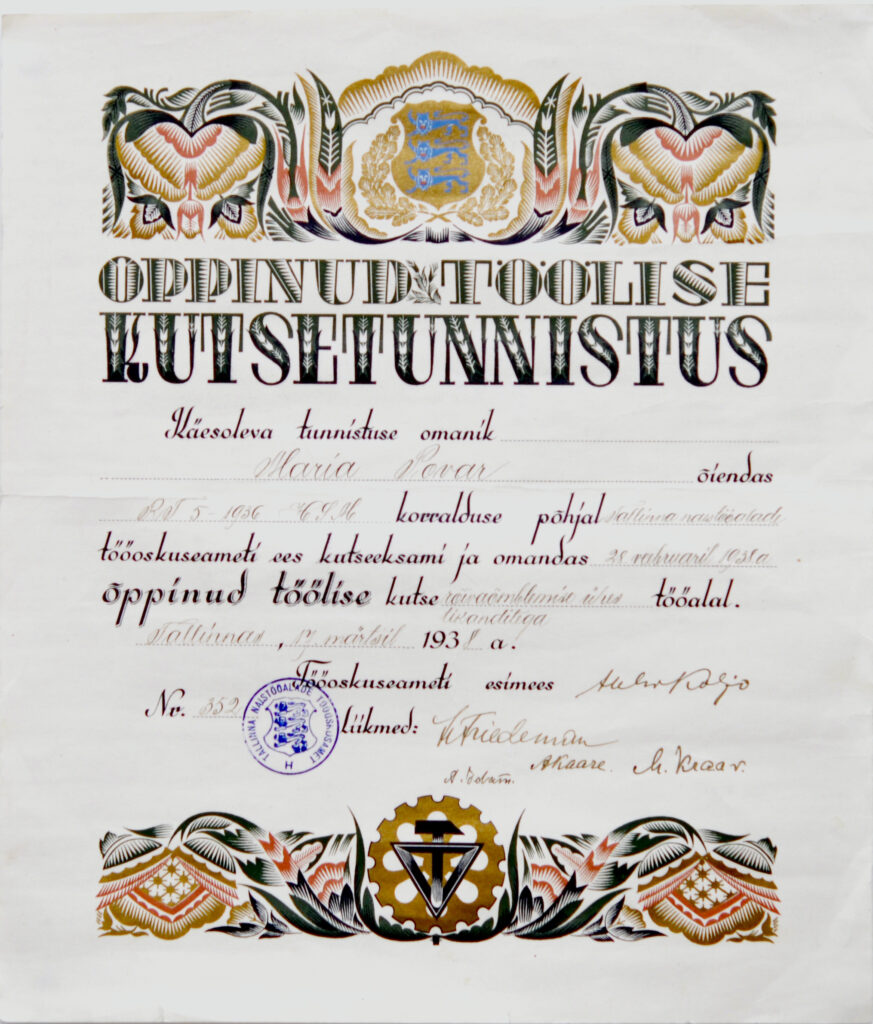 ÕPPINUD TÖÖLISE
KUTSETUNNISTUS
Käesoleva tunnistuse omanik
Maria Povar õiendas
R.T. 5 - 1936 korralduse põhjal Tallinna naistööalade
tööoskuseameti ees kutseeksami ja omandas 28 veebruaril 1938 a
õppinud töölise kutse rõivaõmblemise tööalal.
Tallinnas, 17 märtsil 1938 a.
Tööoskuseameti esimees
Nr. 352
liikmed:
TALLINNA NAISTÖÖALADE TÖÖOSKUSAMET
H
Friedeman
A Kaare. M. Kraav.